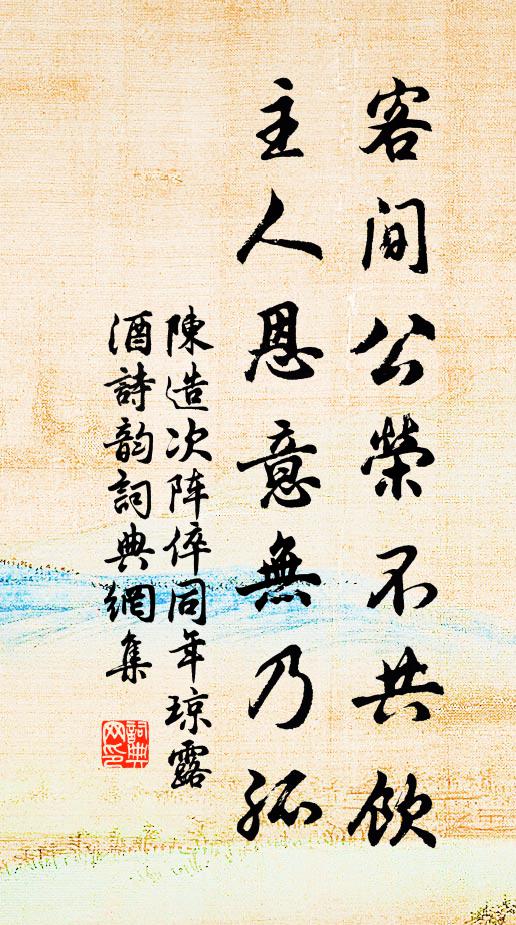 客間公榮不共飲
主人恩意無乃孤
陳造次阵倅同年琼露
酒詩韵詞典網集
詞典网印